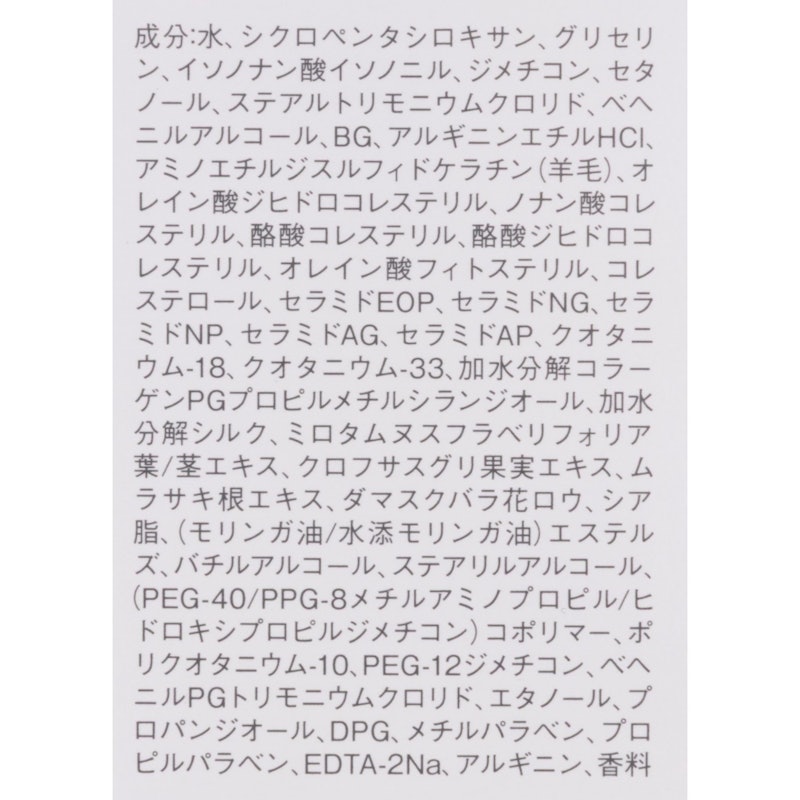 成分:水、シクロペンタシロキサン、グリセリ
ン、イソノナン酸イソノニル、ジメチコン、セタ
ノール、ステアルトリモニウムクロリド、ベヘ
ニルアルコール、BG、アルギニンエチルHCl、
アミノエチルジスルフィドケラチン(羊毛)、オ
レイン酸ジヒドロコレステリル、ノナン酸コレ
ステリル、酪酸コレステリル、酪酸ジヒドロコ
レステリル、オレイン酸フィトステリル、コレ
ステロール、セラミドEOP、セラミドNG、セラ
ミドNP、セラミドAG、セラミドAP、クオタニ
ウム-18、クオタニウム-33、加水分解コラー
ゲンPGプロピルメチルシランジオール、加水
分解シルク、ミロタムヌスフラベリフォリア
葉/茎エキス、クロフサスグリ果実エキス、ム
ラサキ根エキス、ダマスクバラ花ロウ、シア
脂、(モリンガ油/水添モリンガ油)エステル
ズ、バチルアルコール、ステアリルアルコール、
(PEG-40/PPG-8メチルアミノプロピル/ヒ
ドロキシプロピルジメチコン)コポリマー、ポ
リクオタニウム-10、PEG-12ジメチコン、ベヘ
ニルPGトリモニウムクロリド、エタノール、プ
ロパンジオール、DPG、メチルパラベン、プロ
ピルパラベン、EDTA-2Na、アルギニン、香料